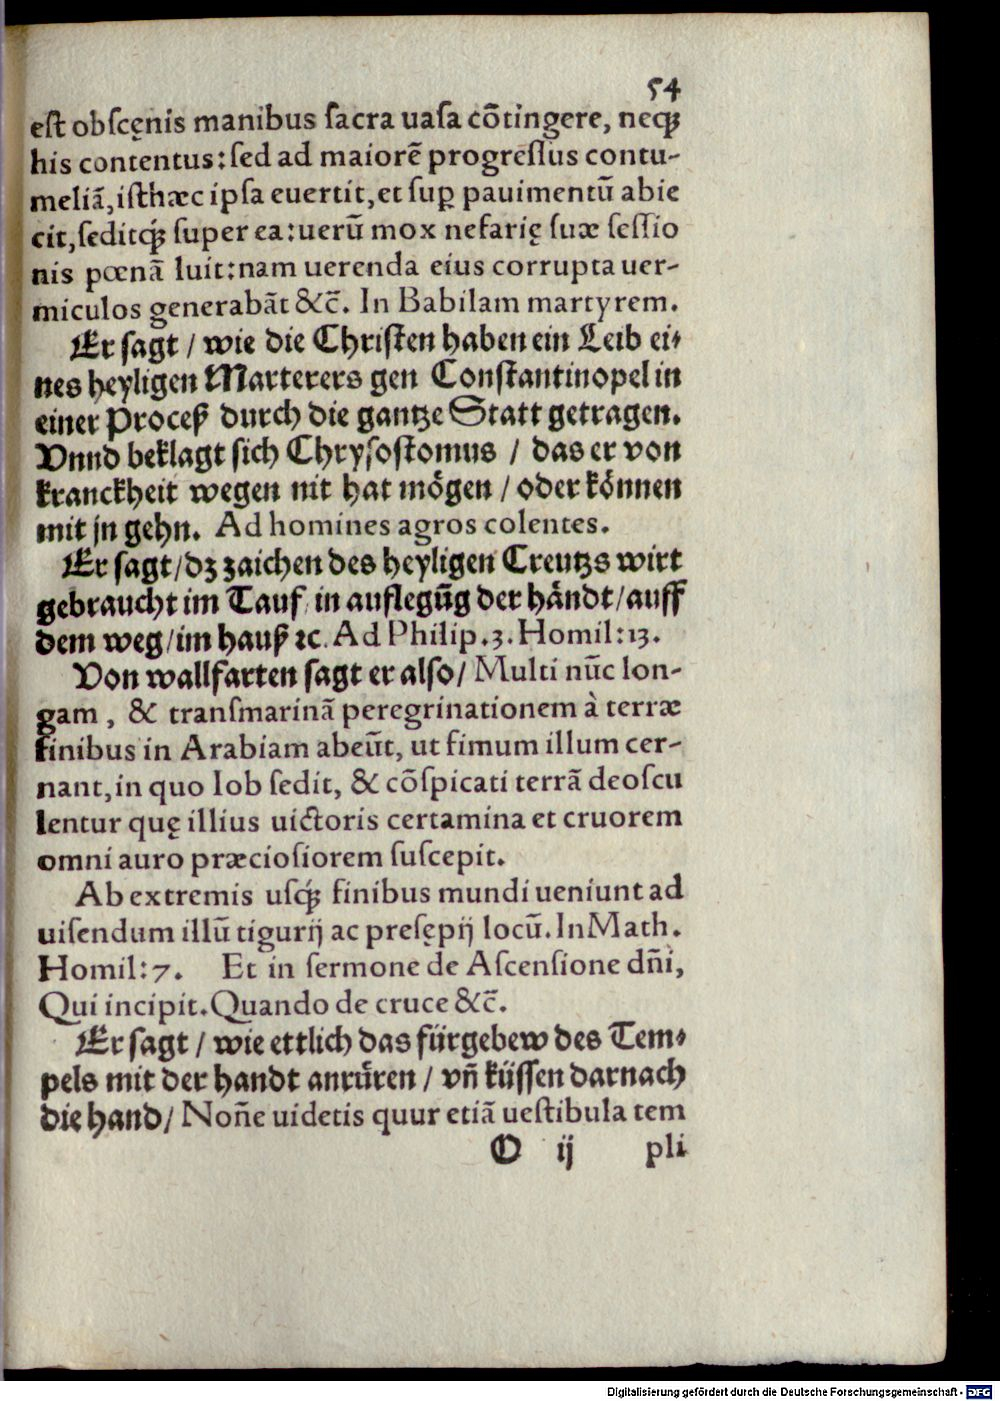 54
est obscęnis manibus sacra uasa cõtingere, neqꝫ
his contentus: sed ad maiorẽ progressus contu-
meliã, isthæc ipsa euertit, et suꝑ pauimentũ abie
cit, seditqꝫ́ super ea: uerũ mox nefarię suæ sessio
nis pœnã luit: nam uerenda eius corrupta uer-
miculos generabãt &c̃. In Babilam martyrem.
Er sagt / wie die Christen haben ein Leib ei⸗
nes heyligen Marterers gen Constantinopel in
einer Proceß durch die gantze Statt getragen.
Vnnd beklagt sich Chrysostomus / das er von
kranckheit wegen nit hat mögen / oder können
mit jn gehn. Ad homines agros colentes.
Er sagt / dz zaichen des heyligen Creutzs wirt
gebraucht im Tauf / in auflegũg der händt / auff
dem weg / im hauß ꝛc. Ad Philip. 3. Homil: 13.
Von wallfarten sagt er also / Multi nũc lon-
gam, & transmarinã peregrinationem à terræ
finibus in Arabiam abeũt, ut fimum illum cer-
nant, in quo Iob sedit, & cõspicati terrã deoscu
lentur quę illius uictoris certamina et cruorem
omni auro præciosiorem suscepit.
Ab extremis usqꝫ́ finibus mundi ueniunt ad
uisendum illũ tigurij ac presępij locũ. In Math.
Homil: 7. Et in sermone de Ascensione dñi,
Qui incipit. Quando de cruce &c̃.
Er sagt / wie ettlich das fürgebew des Tem⸗
pels mit der handt anrüren / vñ küssen darnach
die hand / Nonñe uidetis quur etiã uestibula tem
O ij pli
Digitalisierung gefördert durch die Deutsche Forschungsgemeinschaft - DFG